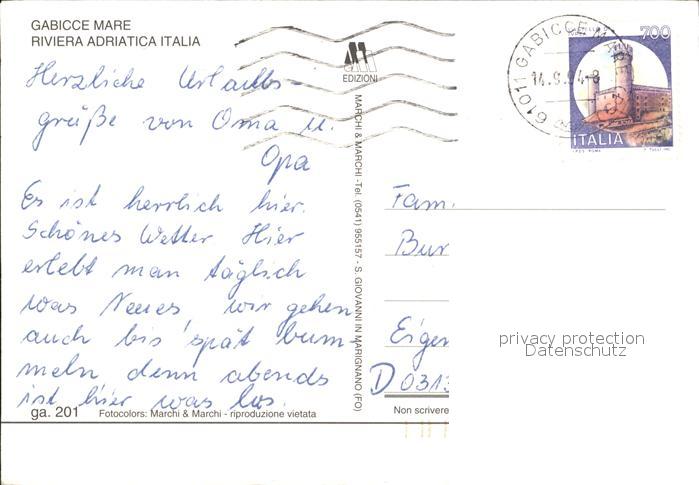 GABICCE MARE
RIVIERA ADRIATICA ITALIA
EDIZIONI
Herzliche Urlaubs-
grüße von Oma u.
Opa
Es ist herrlich hier.
Schönes Wetter Hier
erlebt man täglich
was Neues, wir gehen
auch bis spät bum-
meln denn abends
ist hier was los.
ga. 201
Fotocolors: Marchi & Marchi - riproduzione vietata
MARCHI & MARCHI -Tel. (0541) 955157 - S. GIOVANNI IN MARIGNANO (FO)
61011 GABICCE M
14.9.94-8
700
ITALIA
Fam.
Bur
Eigen
D 0313
Non scrivere
privacy protection
Datenschutz